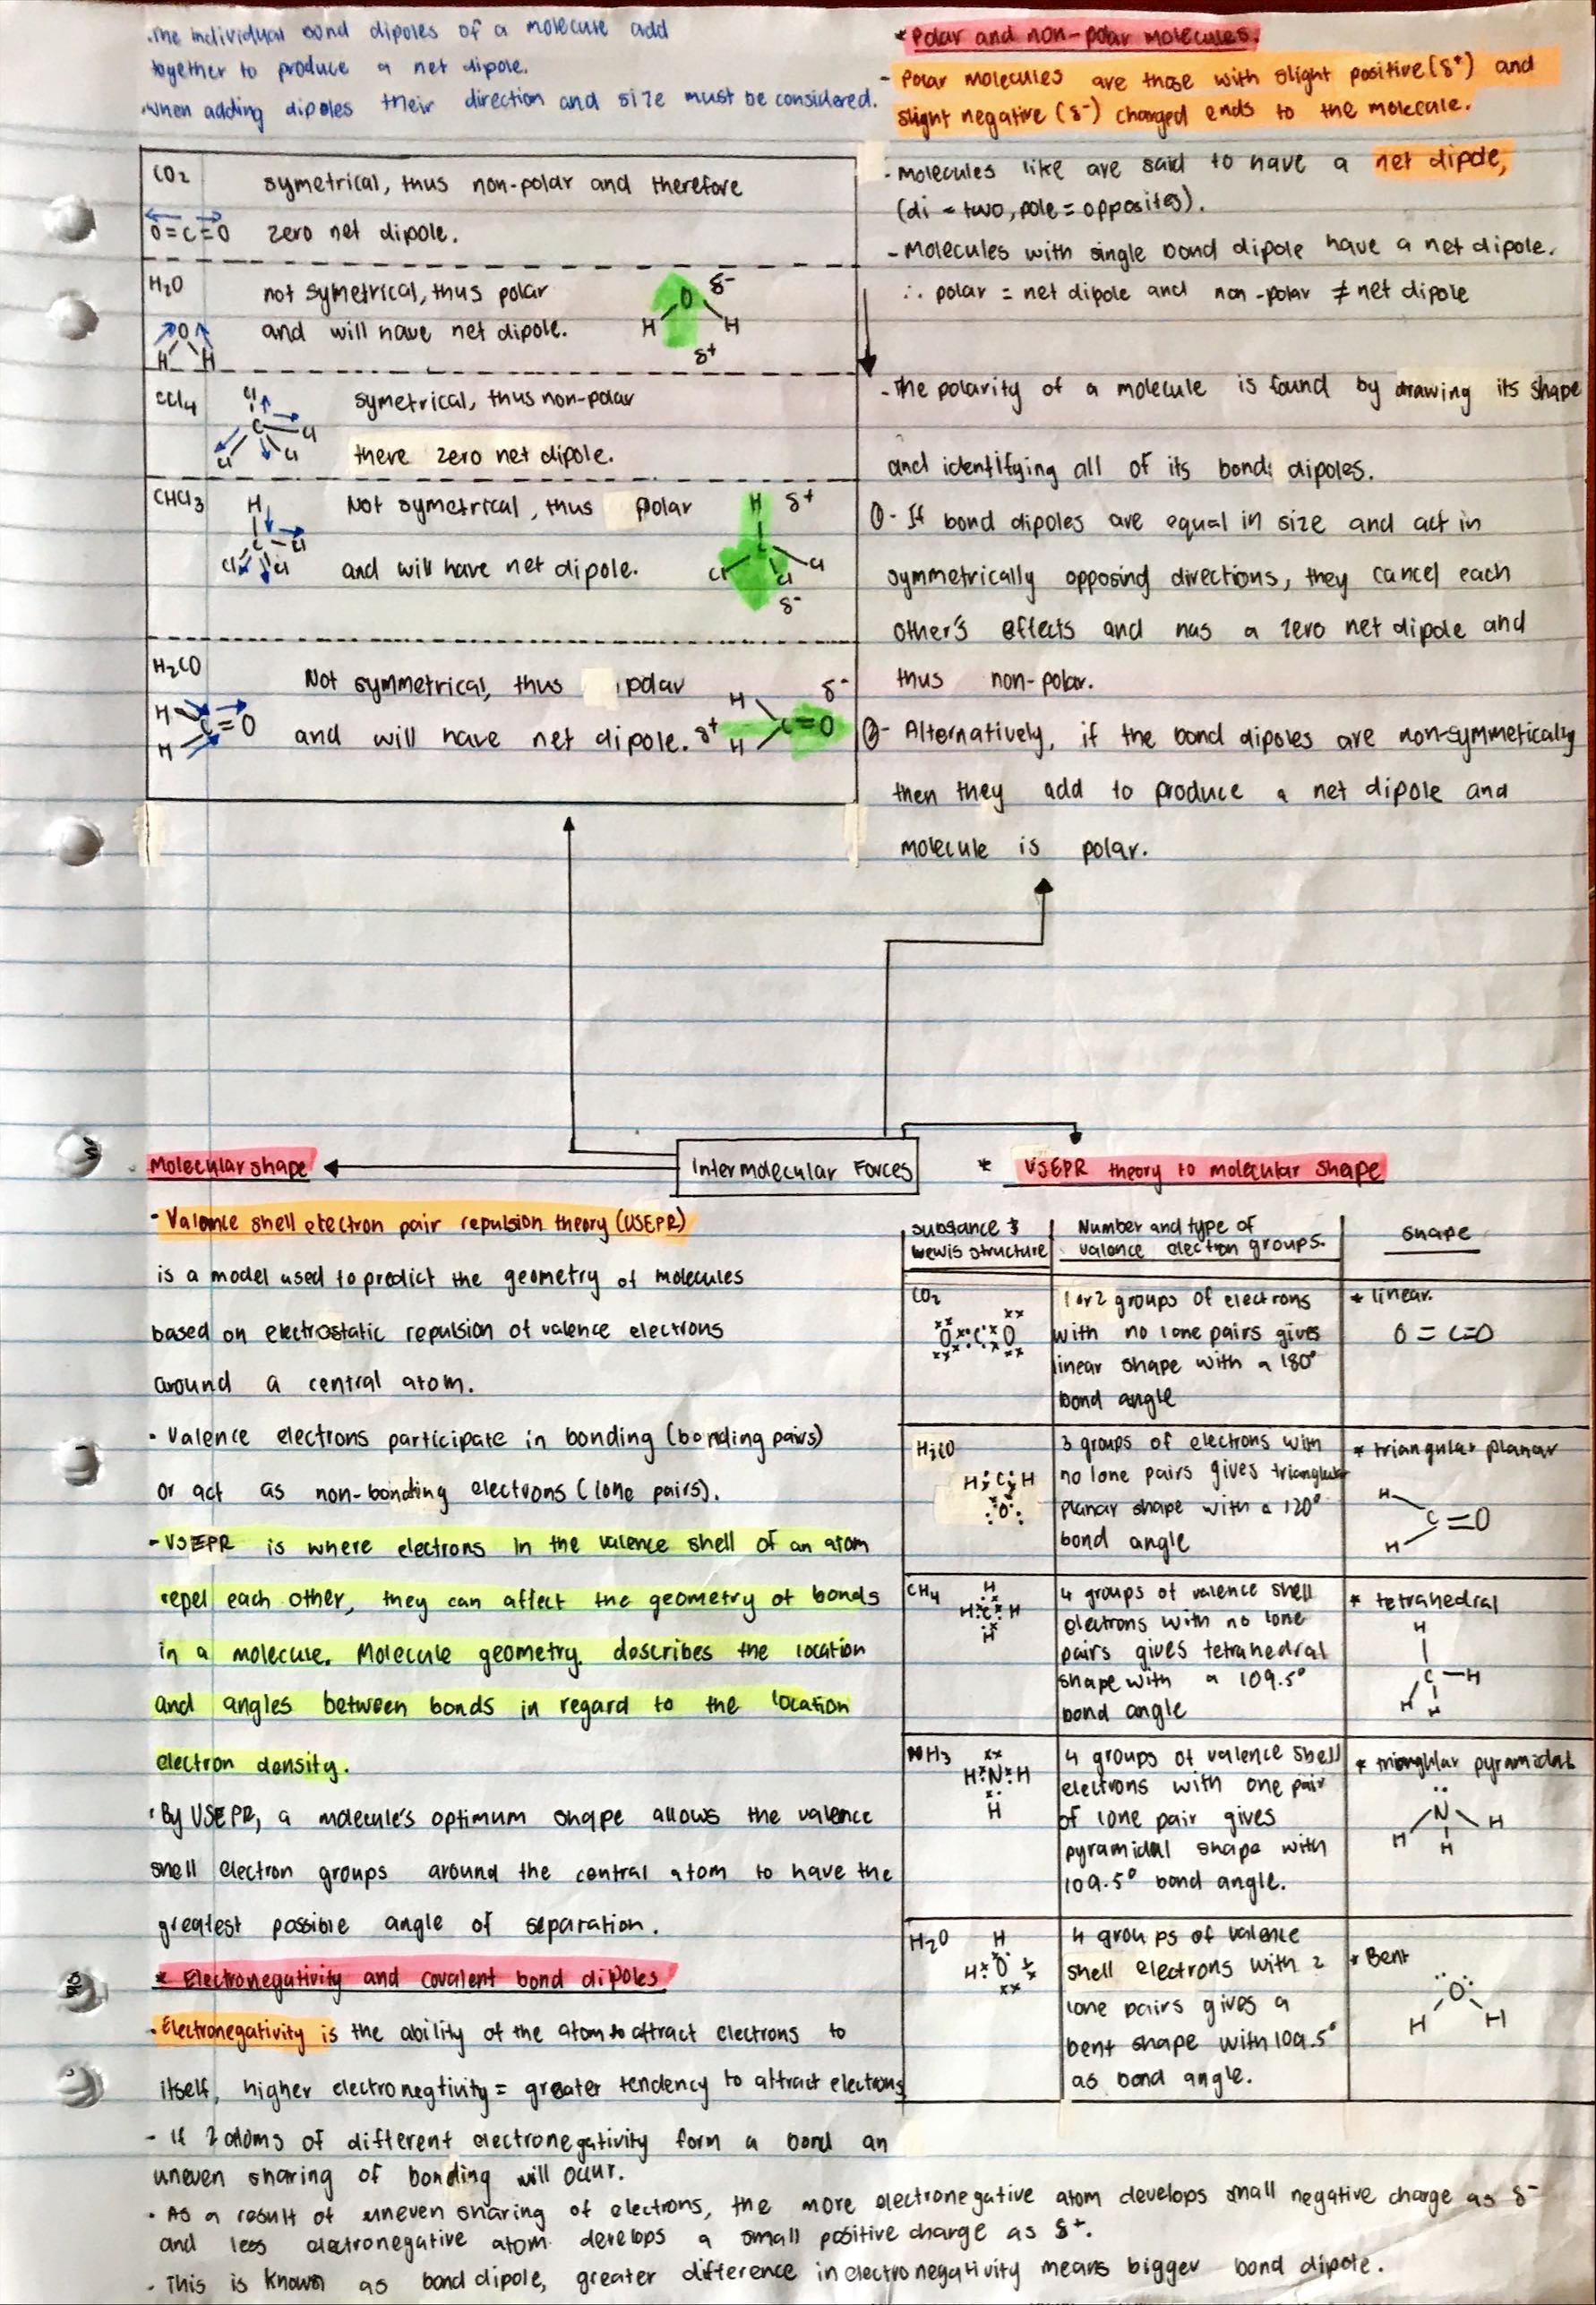 .The individual bond dipoles of a molecule add
together to produce a net dipole.
.when adding dipoles their direction and size must be considered.
CO2
symetrical, thus non-polar and therefore
O=C=O
zero net dipole.
H2O
not symetrical, thus polar
and will have net dipole.
O
H H
O δ-
H H
δ+
CCl4
symetrical, thus non-polar
there zero net dipole.
Cl
C
Cl Cl Cl
CHCl3
Not symetrical, thus polar
and will have net dipole.
H
C
Cl Cl Cl
H δ+
C
Cl Cl Cl
δ-
H2CO
Not symmetrical, thus polar
and will have net dipole.
H
C=O
H
H δ-
δ+ C=O
H
* Polar and non-polar molecules.
- Polar molecules are those with slight positive (δ+) and
slight negative (δ-) charged ends to the molecule.
- Molecules like are said to have a net dipole,
(di = two, pole = opposites).
- Molecules with single bond dipole have a net dipole.
∴ polar = net dipole and non-polar ≠ net dipole
- The polarity of a molecule is found by drawing its shape
and identifying all of its bond dipoles.
①- If bond dipoles are equal in size and act in
symmetrically opposing directions, they cancel each
other's effects and has a zero net dipole and
thus non-polar.
②- Alternatively, if the bond dipoles are non-symmetically
then they add to produce a net dipole and
molecule is polar.
Intermolecular Forces
Molecular shape
- Valence shell electron pair repulsion theory (VSEPR)
is a model used to predict the geometry of molecules
based on electrostatic repulsion of valence electrons
around a central atom.
. Valence electrons participate in bonding (bonding pairs)
or act as non-bonding electrons (lone pairs).
- VSEPR is where electrons in the valence shell of an atom
repel each other, they can affect the geometry of bonds
in a molecule. Molecule geometry. describes the location
and angles between bonds in regard to the location
electron density.
. By VSEPR, a molecule's optimum shape allows the valence
shell electron groups around the central atom to have the
greatest possible angle of separation.
* Electronegativity and covalent bond dipoles
. Electronegativity is the ability of the atom to attract electrons to
itself, higher electronegtivity = greater tendency to attract electrons
- If 2 atoms of different electronegativity form a bond an
uneven sharing of bonding will occur.
. As a result of uneven sharing of electrons, the more electronegative atom develops small negative charge as δ-
and less electronegative atom develops a small positive charge as δ+.
. This is known as bond dipole, greater difference in electronegativity means bigger bond dipole.
* VSEPR theory to molecular shape
substance &
Lewis structure
Number and type of
valence electron groups.
shape
CO2
O C O
1 or 2 groups of electrons
with no lone pairs gives
linear shape with a 180°
bond angle
* linear.
O = C=O
H2CO
H C H
O
3 groups of electrons with
no lone pairs gives trianglular
planar shape with a 120°
bond angle
* triangular planar
H
C=O
H
CH4
H
H C H
H
4 groups of valence shell
electrons with no lone
pairs gives tetrahedral
shape with a 109.5°
bond angle
* tetrahedral
H
C-H
H H
NH3
H N H
H
4 groups of valence shell
electrons with one pair
of lone pair gives
pyramidal shape with
109.5° bond angle.
* trianglular pyramidal
N
H H H
H2O
H
H O
4 groups of valence
shell electrons with 2
lone pairs gives a
bent shape with 109.5°
as bond angle.
* Bent
O
H H